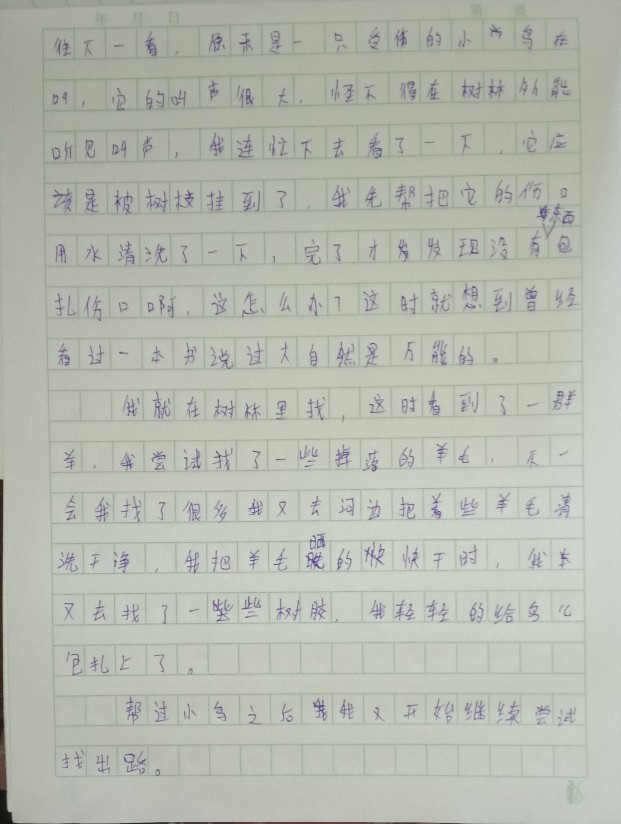 年 月 日 第 页
往下一看，原来是一只受伤的小鸟在
叫，它的叫声很大，怪不得在树林外能
听见叫声，我连忙下去看了一下，它应
该是被树枝挂到了，我先帮把它的伤口
用水清洗了一下，完了才发发现没有东西包
扎伤口啊，这怎么办？这时就想到曾经
看过一本书说过大自然是万能的。
我就在树林里找，这时看到了一群
羊，我尝试找了一些掉落的羊毛，不一
会我找了很多我又去河边把着些羊毛清
洗干净，我把羊毛晒的快快干时，我
又去找了一些些树胶，我轻轻的给鸟儿
包扎上了。
帮过小鸟之后我我又开始继续尝试
找出路。